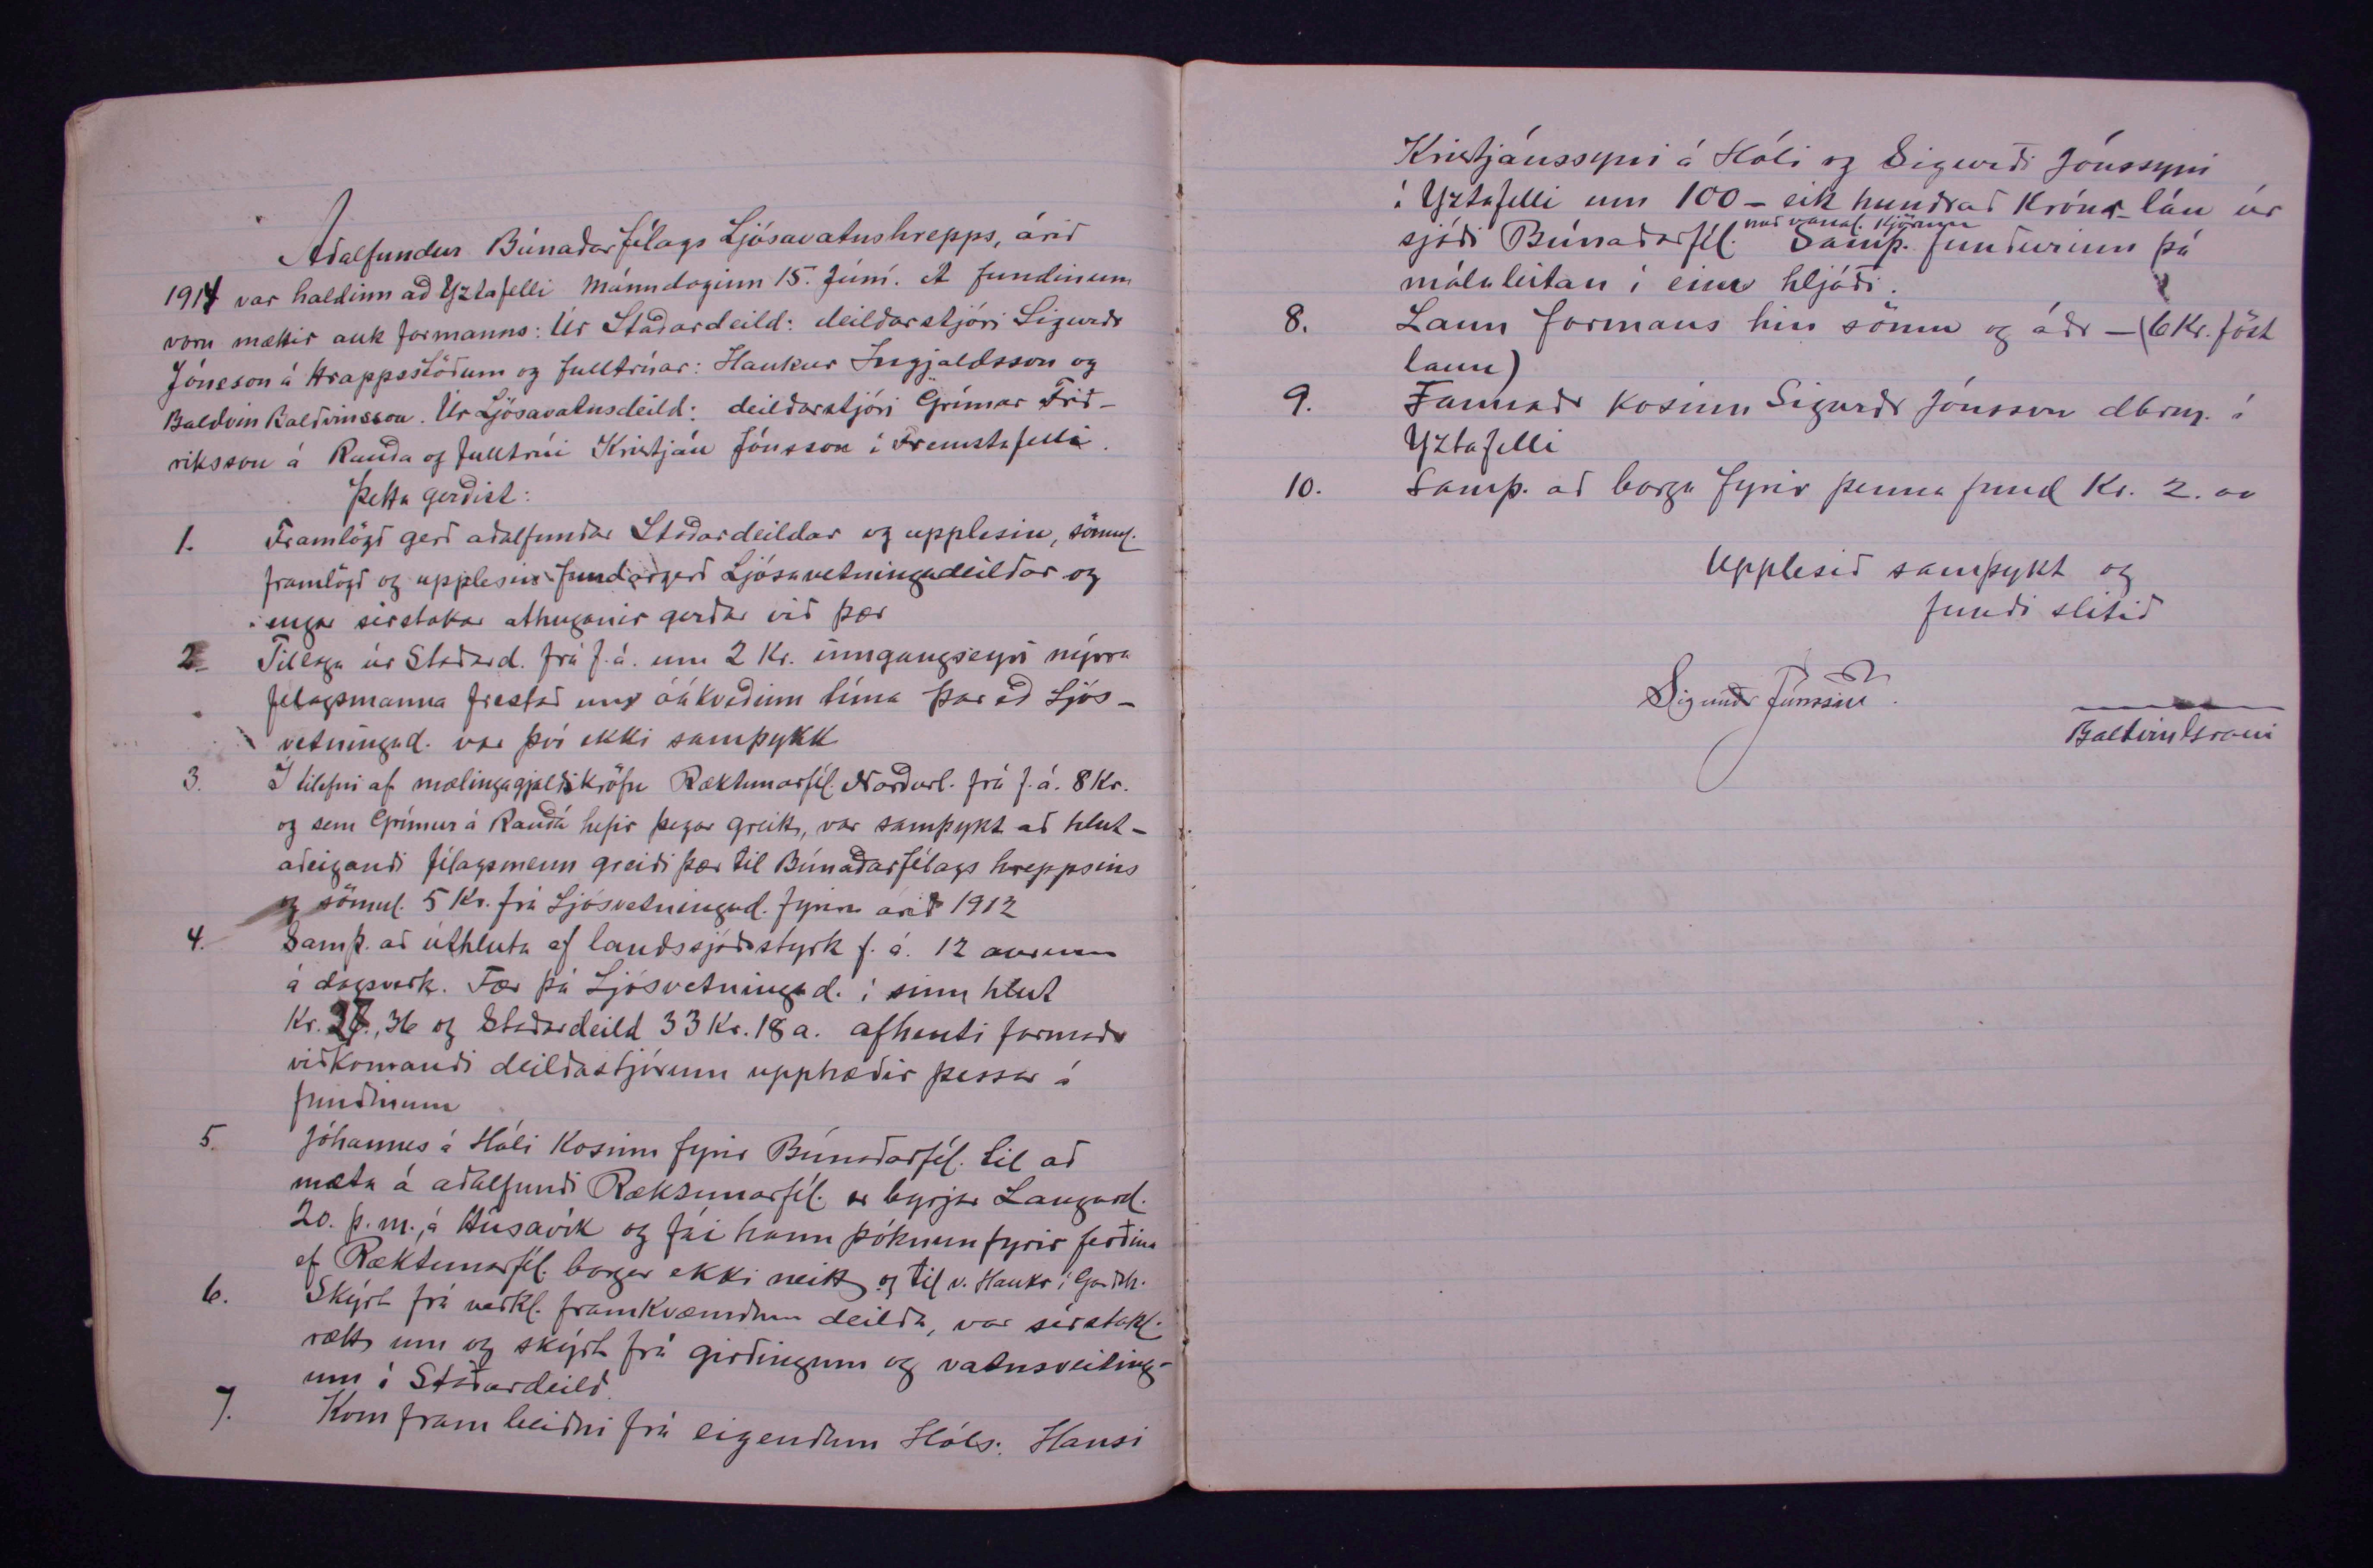 Aðalfundur Búnaðarfélags Ljósavatnshrepps, árið
1914 var haldinn að Yztafelli Mánudaginn 15. Júní. Á fundinum
voru mættir auk formanns: Úr Staðardeild: deildarstjóri Sigurðr
Jónsson á Hrappsstöðum og fulltrúar: Haukur Ingjaldsson og
Baldvin Baldvinsson. Úr Ljósavatnsdeild: deildarstjóri Grímur Frið-
riksson á Rauðá og fulltrúi Kristján Jónsson í Fremstafelli.
Þetta gerðist:
1. Framlögð gerð aðalfundar Staðardeildar og upplesin, sömul.
framlögð og upplesin fundargerð Ljósavetningadeildar og
engar sérstakar athuganir gerðar við þær
2. Tillaga úr Staðard. frá f.á. um 2 Kr. inngangseyri nýrra
félagsmanna frestað um óákveðinn tíma þar eð Ljós-
vetningad. var því ekki samþykk
3. Í tilefni af mælingagjaldskröfu Ræktunarfél. Norðurl. frá f.á. 8 Kr.
og sem Grímur á Rauðá hefir þegar greitt, var samþykt að hlut-
aðeigandi félagsmenn greiði þær til Búnaðarfélags hreppsins
og sömul. 5 Kr. frá Ljósvetningad. fyrir árið 1912
4. Samþ. að úthluta af landssjóðsstyrk f.á. 12 aurum
á dagsverk. Fær þá Ljósvetningad. í sinn hlut
Kr. 27.,36 og Staðardeild 33 Kr. 18 a. afhenti formaðr
viðkomandi deildastjórum upphæðir þessar á
fundinum
5. Jóhannes á Hóli Kosinn fyrir Búnaðarfél. til að
mæta á aðalfundi Ræktunarfél. er byrjar Laugard.
20. þ.m., á Húsavík og fái hann þóknun fyrir ferðina
ef Ræktunarfél. borgar ekki neitt og til v. Haukr í Garðsh.
6. Skýrt frá verkl. framkvæmdum deilda, var sérstakl.
rætt um og skýrt frá girðingum og vatnsveiting-
um í Staðardeild.
7. Kom fram beiðni frá eigendum Hóls: Hansi
Kristjánssyni á Hóli og Sigurði Jónssyni
í Yztafelli um 100 - eik hundrað Króna lán úr
með vanal. Kjörum
sjóði Búnaðarfél. Samþ. fundurinn þá
málaleitan í einu hljóði.
8. Laun formans hin sömu og áðr - (6 Kr. föst
laun)
9. Formaðr Kosinn Sigurðr Jónsson dbrm. í
Yztafelli
10. Samþ. að borga fyrir þenna fund Kr. 2.00
Upplesið samþykt og
fundi slitið
Sigurðr Jónsson.